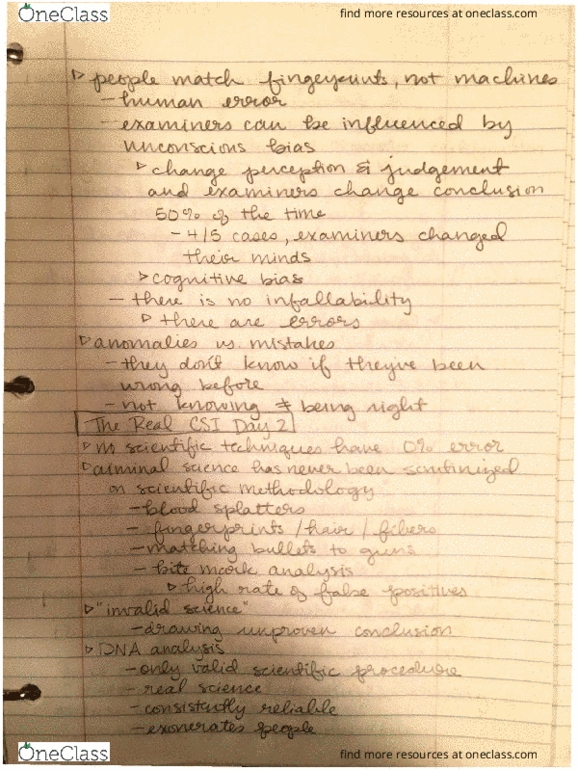 OneClass
find more resources at oneclass.com
▷ people match fingerprints, not machines
- human error
- examiners can be influenced by
unconscious bias
▷ change perception & judgement
and examiners change conclusion
50% of the time
- 4/5 cases, examiners changed
their minds
▷ cognitive bias
- there is no infallability
▷ there are errors
▷ anomalies vs. mistakes
- they don't know if theyve been
wrong before
- not knowing ≠ being right
The Real CSI Day 2
▷ no scientific techniques have 0% error
▷ criminal science has never been scrutinized
on scientific methodology
- blood splatters
- fingerprints / hair / fibers
- matching bullets to guns
- bite mark analysis
▷ high rate of false positives
▷ "invalid science"
- drawing unproven conclusion
▷ DNA analysis
- only valid scientific procedure
- real science
- consistently reliable
- exonerates people
OneClass
find more resources at oneclass.com